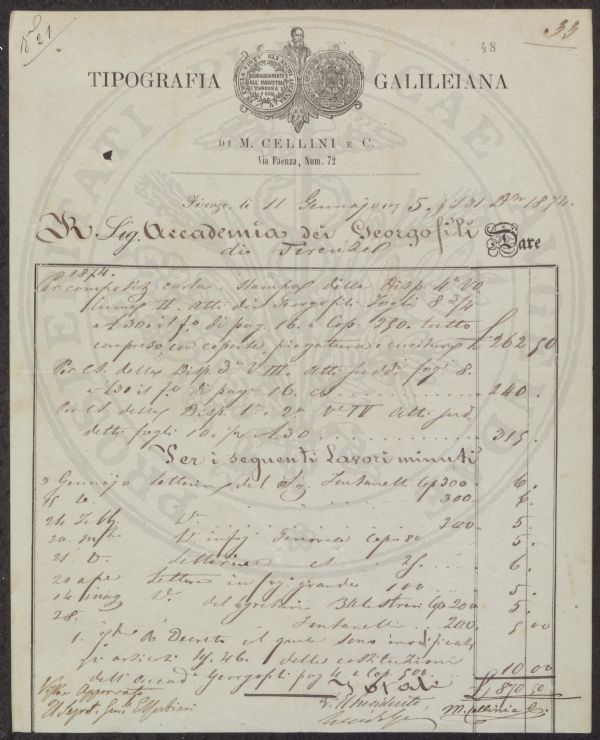 N.° 21
33
48
TIPOGRAFIA GALILEIANA
DI M. CELLINI E C.
Via Faenza, Num. 72
Firenze, li 11 Gennajo 1875 31 Dbre 1874.
R Sig. Accademia dei Georgofili Dare
di Firenze
1874.
Per composiz. carta, stampa della Disp. 4a Vo
lume II. Atti dei Georgofili Fogli 8 3/4
a £ 30 il f.o di pag. 16. Cop. 250. tutto
compreso, con coperta, piegatura e cucitura £ 262 50
Per C.S. della Disp. 3a V. III. Atti sudd. fogl. 8.
a £ 30 il f.o di pag. 16. 240.
Per C.S. della Disp. 1a 2a V. IV Atti sud
detti fogli 10. 1/2 a £ 30 315.
Per i seguenti Lavori minuti
Gennajo Letterine del Sig. Fontanelli Cop 300 6.
15 300 6.
24 Febb. 200 5
20 in fog. Genovia Cop. 80 5.
21 Letterine 25 6.
20 ape Lettere in fog. grande 100 5.
14 mag del Segretario Balestreri Cop 200 5.
28. Fontanelli 200 5 00
1. Decreto il quale sono modificati
gli articoli 45. 46. delle costituzioni
dell'Accad.a Georgofili pag 4. Cop. 500 10 00
Totale £ 870 50
Visto Approvato
Il Segret. Gen.le
Il Presidente,
M. Cellini e C.